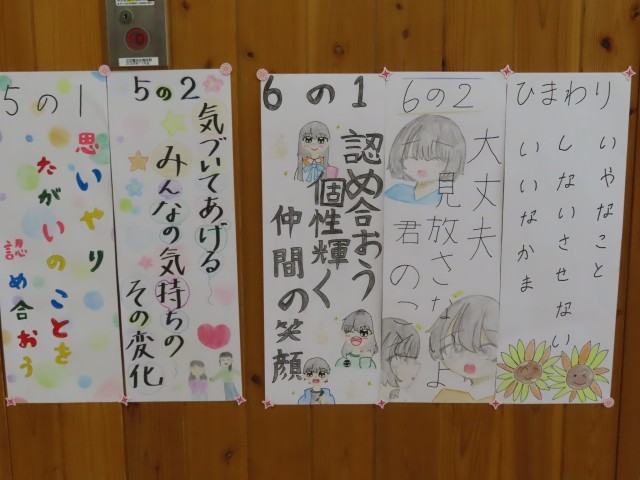 5の1
思いやり
たがいのことを
認め合おう
5の2
気づいてあげる
みんなの気持ちの
その変化
6の1
認め合おう
個性輝く
仲間の笑顔
6の2
大丈夫
見放さないよ
君のこ
ひまわり
いやなこと
しないさせない
いいなかま